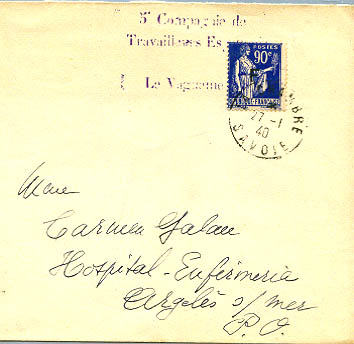 5e Compagnie de
Travailleurs Es
Le Vagueme
POSTES
90c
FRANÇAISE
27 -1
40
SAVOIE
Mme
Carmen Galau
Hospital-Enfirmeria
Argelès s/mer
P.O.